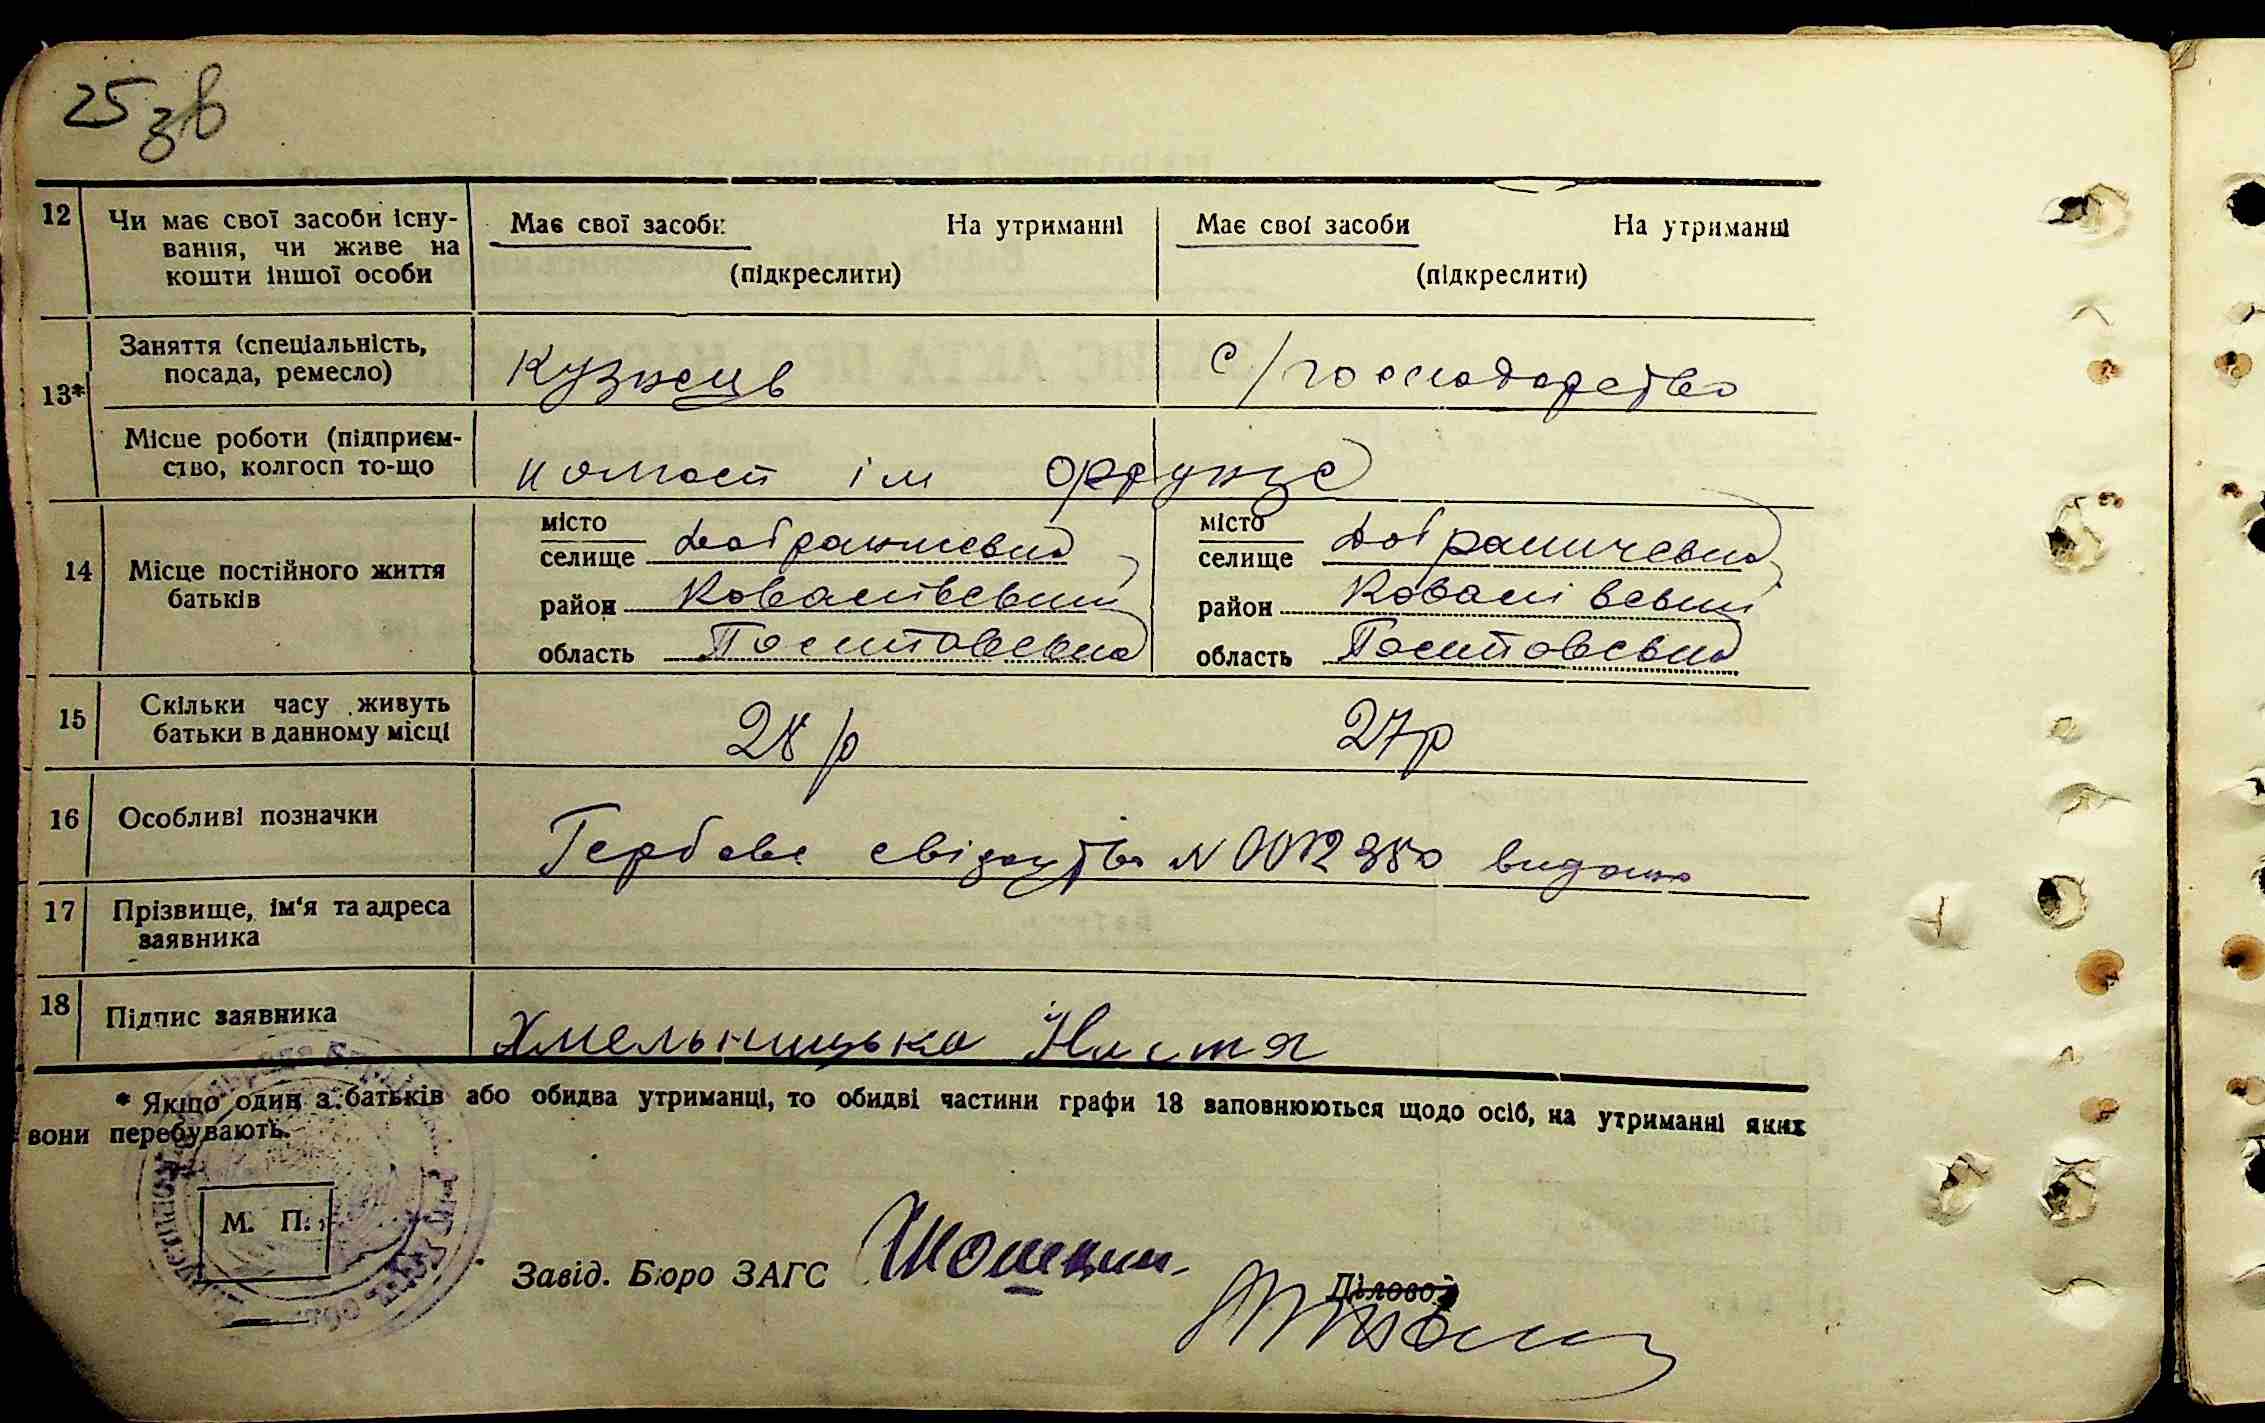 25 зв
12 Чи має свої засоби існу- Має свої засоби На утриманні Має свої засоби На утриманні
вання, чи живе на
кошти іншої особи (підкреслити) (підкреслити)
Заняття (спеціальність,
посада, ремесло) Кузнець С/господарство
13*
Місце роботи (підприєм-
ство, колгосп то-що колгосп ім
14 Місце постійного життя
батьків
місто місто
селище селище
район район
область область
15 Скільки часу живуть
батьки в данному місці 28 р 27 р
16 Особливі позначки
Гербове свідоцтво N 0012350 видано
17 Прізвище, ім'я та адреса
заявника
18 Підпис заявника Хмельницька Настя
* Якщо один з батьків або обидва утриманці, то обидві частини графи 18 заповнюються щодо осіб, на утриманні яких
вони перебувають.
М. П.
Завід. Бюро ЗАГС
Діловод